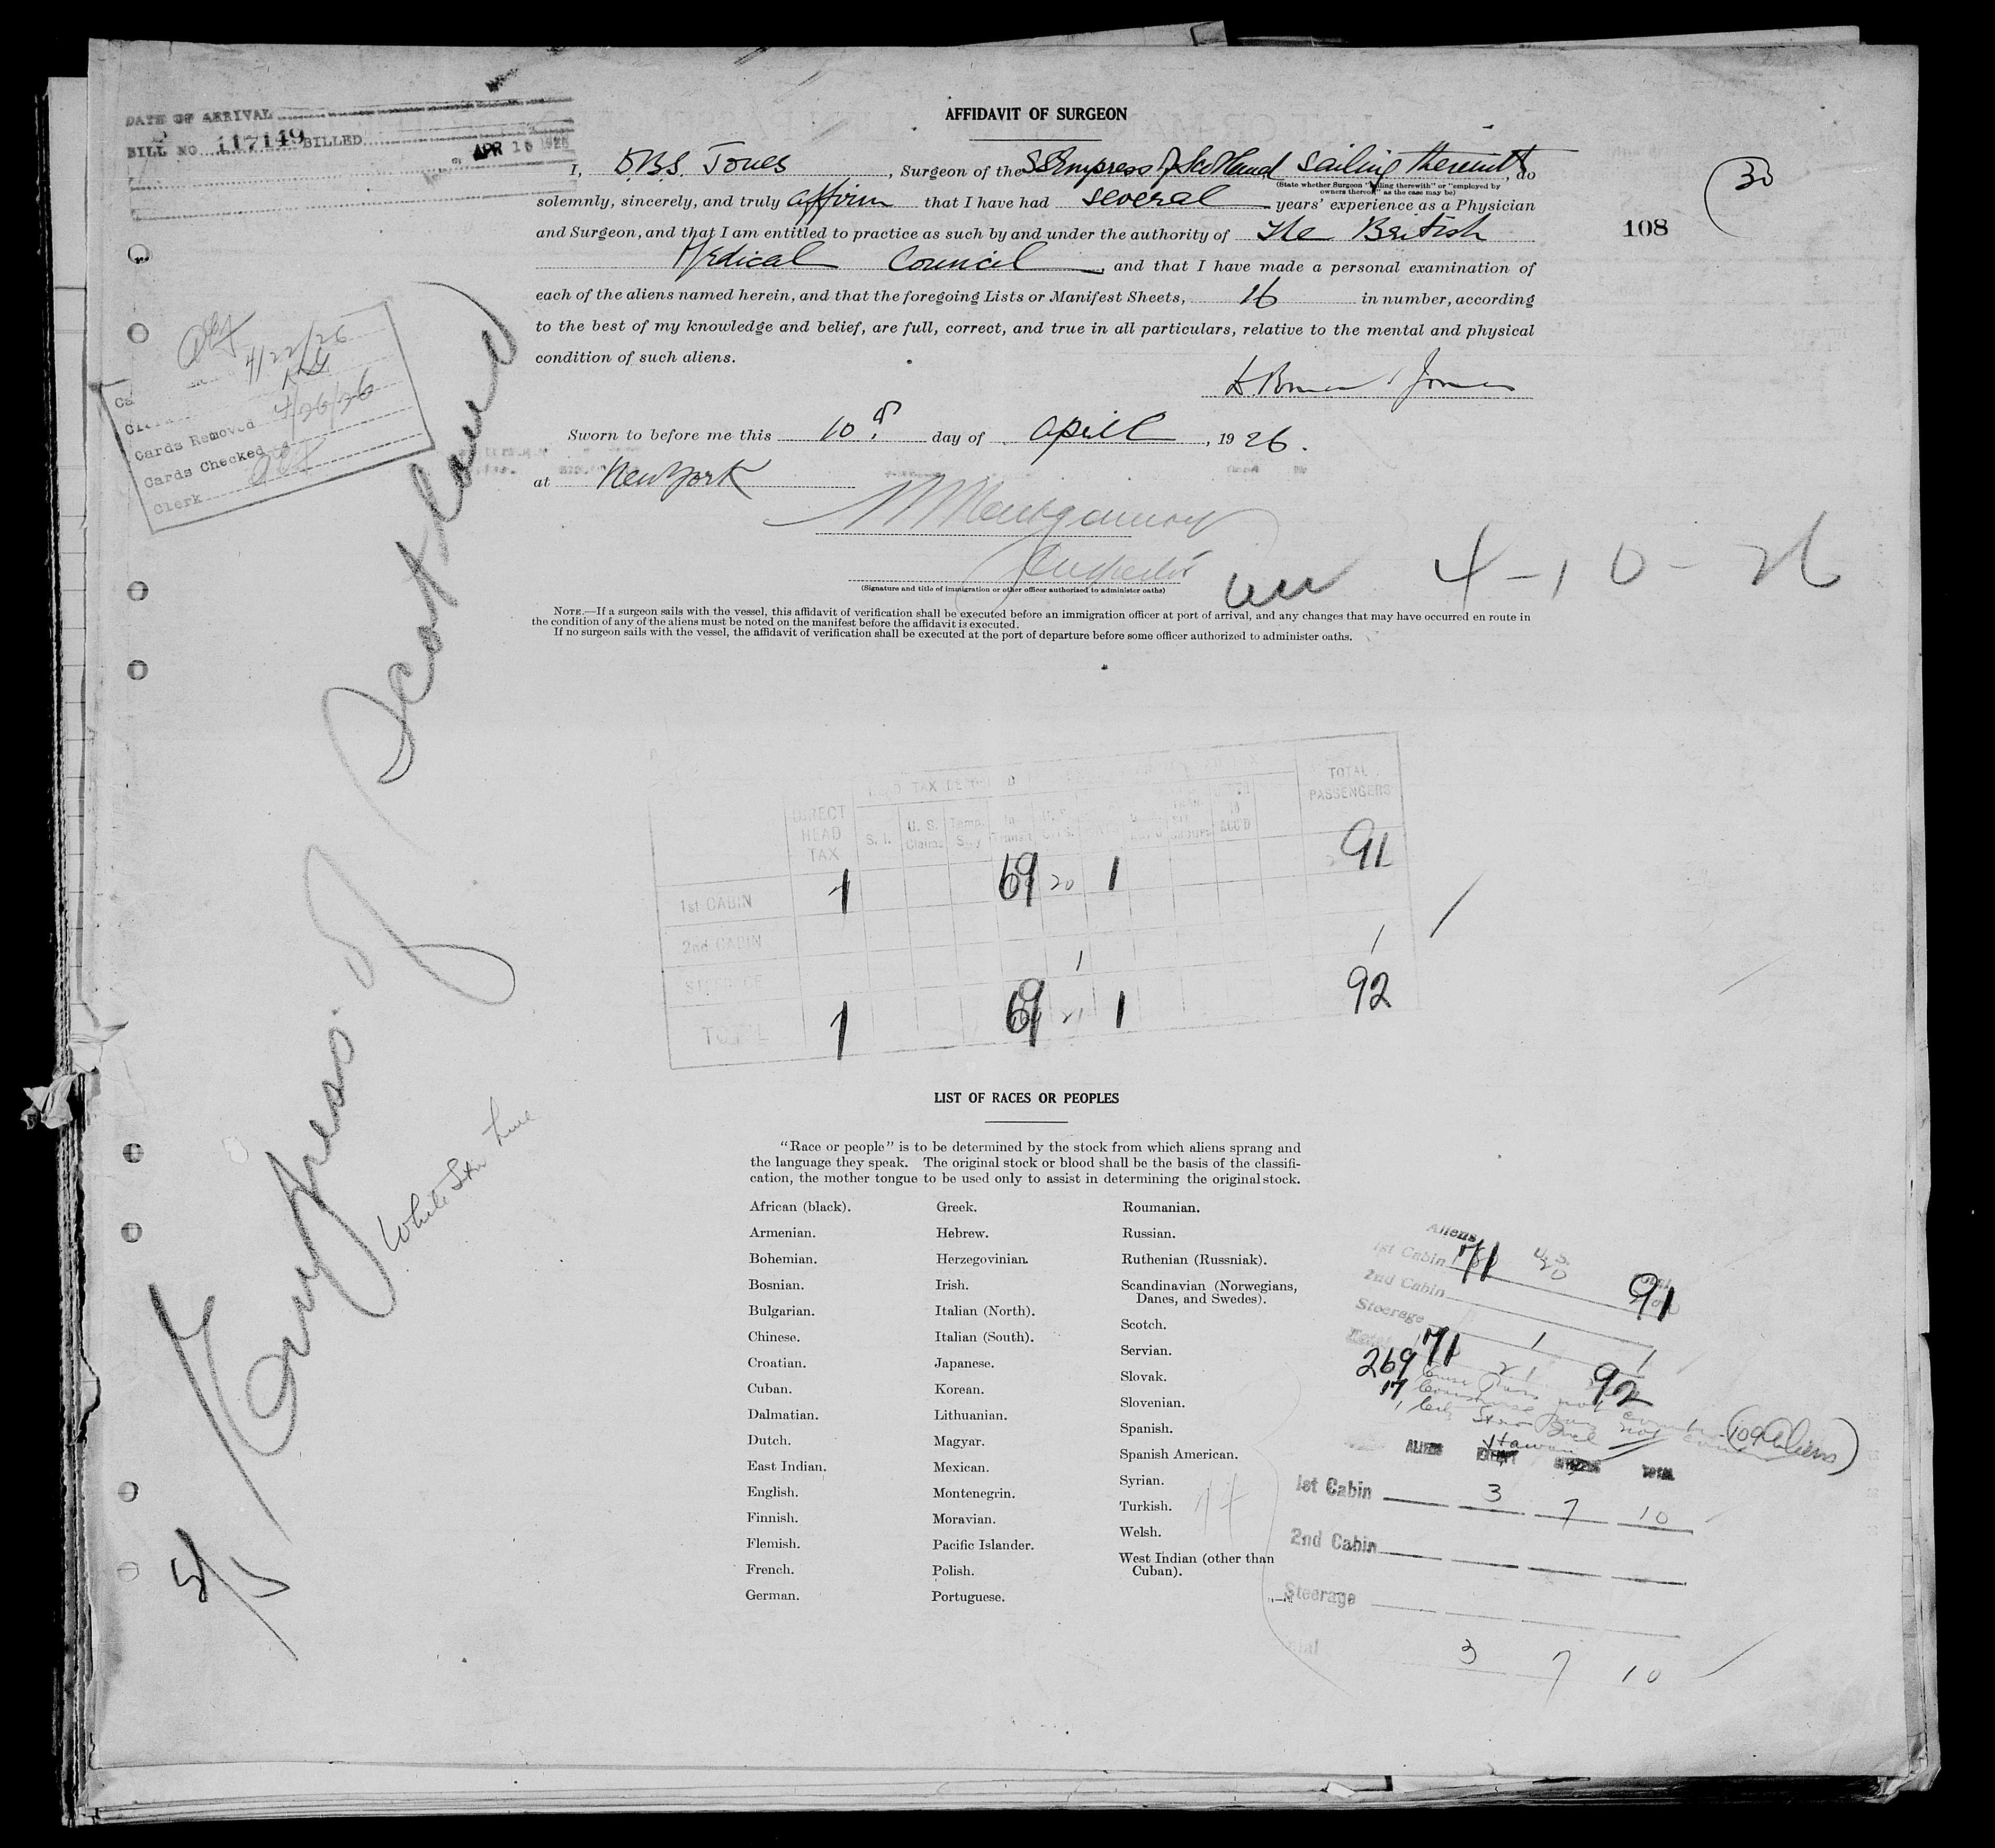 DATE OF ARRIVAL
BILL NO 117149 BILLED
APR 16 1926
AFFIDAVIT OF SURGEON
I, D.B.S. Jones, Surgeon of the SS Empress of Scotland sailing therewith, do
(State whether Surgeon "sailing therewith" or "employed by
owners thereof" as the case may be)
solemnly, sincerely, and truly affirm that I have had several years' experience as a Physician
and Surgeon, and that I am entitled to practice as such by and under the authority of The British
Medical Council, and that I have made a personal examination of
each of the aliens named herein, and that the foregoing Lists or Manifest Sheets, 16 in number, according
to the best of my knowledge and belief, are full, correct, and true in all particulars, relative to the mental and physical
condition of such aliens.
Jones
30
108
4/22/26
Cards Removed 4/26/26
Cards Checked
Clerk
Sworn to before me this 10th day of April, 1926.
at New York
Montgomery
Inspector
(Signature and title of immigration or other officer authorized to administer oaths)
4-10-26
NOTE.—If a surgeon sails with the vessel, this affidavit of verification shall be executed before an immigration officer at port of arrival, and any changes that may have occurred en route in
the condition of any of the aliens must be noted on the manifest before the affidavit is executed.
If no surgeon sails with the vessel, the affidavit of verification shall be executed at the port of departure before some officer authorized to administer oaths.
Empress of Scotland
White Star Line
DIRECT HEAD TAX
S. I.
U. S. Claims
TOTAL PASSENGERS
1st CABIN 1 69 20 1 91
2nd CABIN
STEERAGE 1 1
TOTAL 1 69 21 1 92
LIST OF RACES OR PEOPLES
"Race or people" is to be determined by the stock from which aliens sprang and
the language they speak. The original stock or blood shall be the basis of the classifi-
cation, the mother tongue to be used only to assist in determining the original stock.
African (black).
Armenian.
Bohemian.
Bosnian.
Bulgarian.
Chinese.
Croatian.
Cuban.
Dalmatian.
Dutch.
East Indian.
English.
Finnish.
Flemish.
French.
German.
Greek.
Hebrew.
Herzegovinian.
Irish.
Italian (North).
Italian (South).
Japanese.
Korean.
Lithuanian.
Magyar.
Mexican.
Montenegrin.
Moravian.
Pacific Islander.
Polish.
Portuguese.
Roumanian.
Russian.
Ruthenian (Russniak).
Scandinavian (Norwegians,
Danes, and Swedes).
Scotch.
Servian.
Slovak.
Slovenian.
Spanish.
Spanish American.
Syrian.
Turkish.
Welsh.
West Indian (other than
Cuban).
Aliens U.S.
1st Cabin 71 20 91
2nd Cabin
Steerage 1 1
71 21 92
269
17
(109 Aliens)
ALIENS TOTAL
1st Cabin 3 7 10
2nd Cabin
Steerage
3 7 10